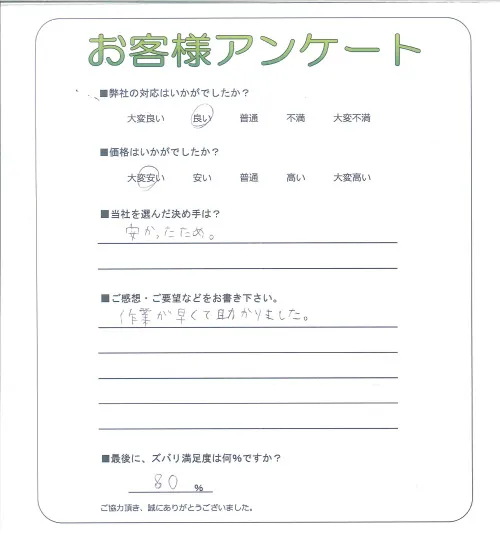 お客様アンケート
■弊社の対応はいかがでしたか?
大変良い 良い 普通 不満 大変不満
■価格はいかがでしたか?
大変安い 安い 普通 高い 大変高い
■当社を選んだ決め手は?
安かったため。
■ご感想・ご要望などをお書き下さい。
作業が早くて助かりました。
■最後に、ズバリ満足度は何%ですか?
80 %
ご協力頂き、誠にありがとうございました。